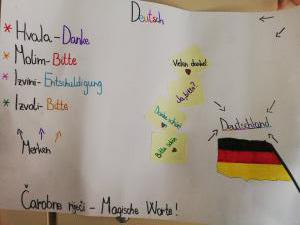 Deutsch
* Hvala - Danke
* Molim - Bitte
* Izvini - Entschuldigung
* Izvoli - Bitte
Merken
Vielen danke!
Ja, bitte?
Danke schön!
Bitte sehr
Deutschland
Čarobne riječi - Magische Worte!